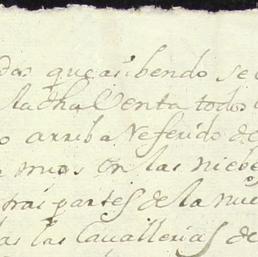 das que asi bendo se
la dha Venta todos
o arriba Referido de
mos en las niebes
tras partes de la nue
las las Cavallerias de